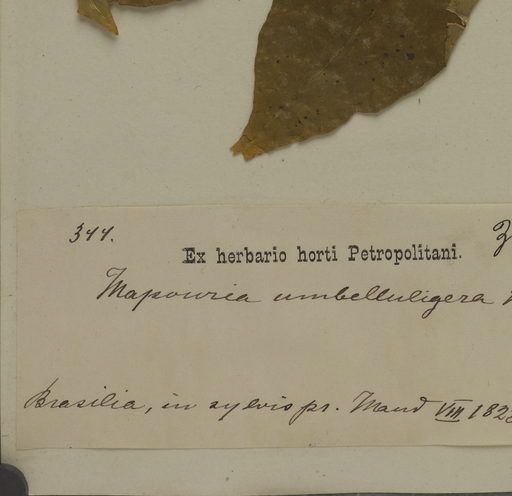 344.
Ex herbario horti Petropolitani.
Mapouria umbelluligera
Brasilia, in sylvis pr. Mand VIII 182